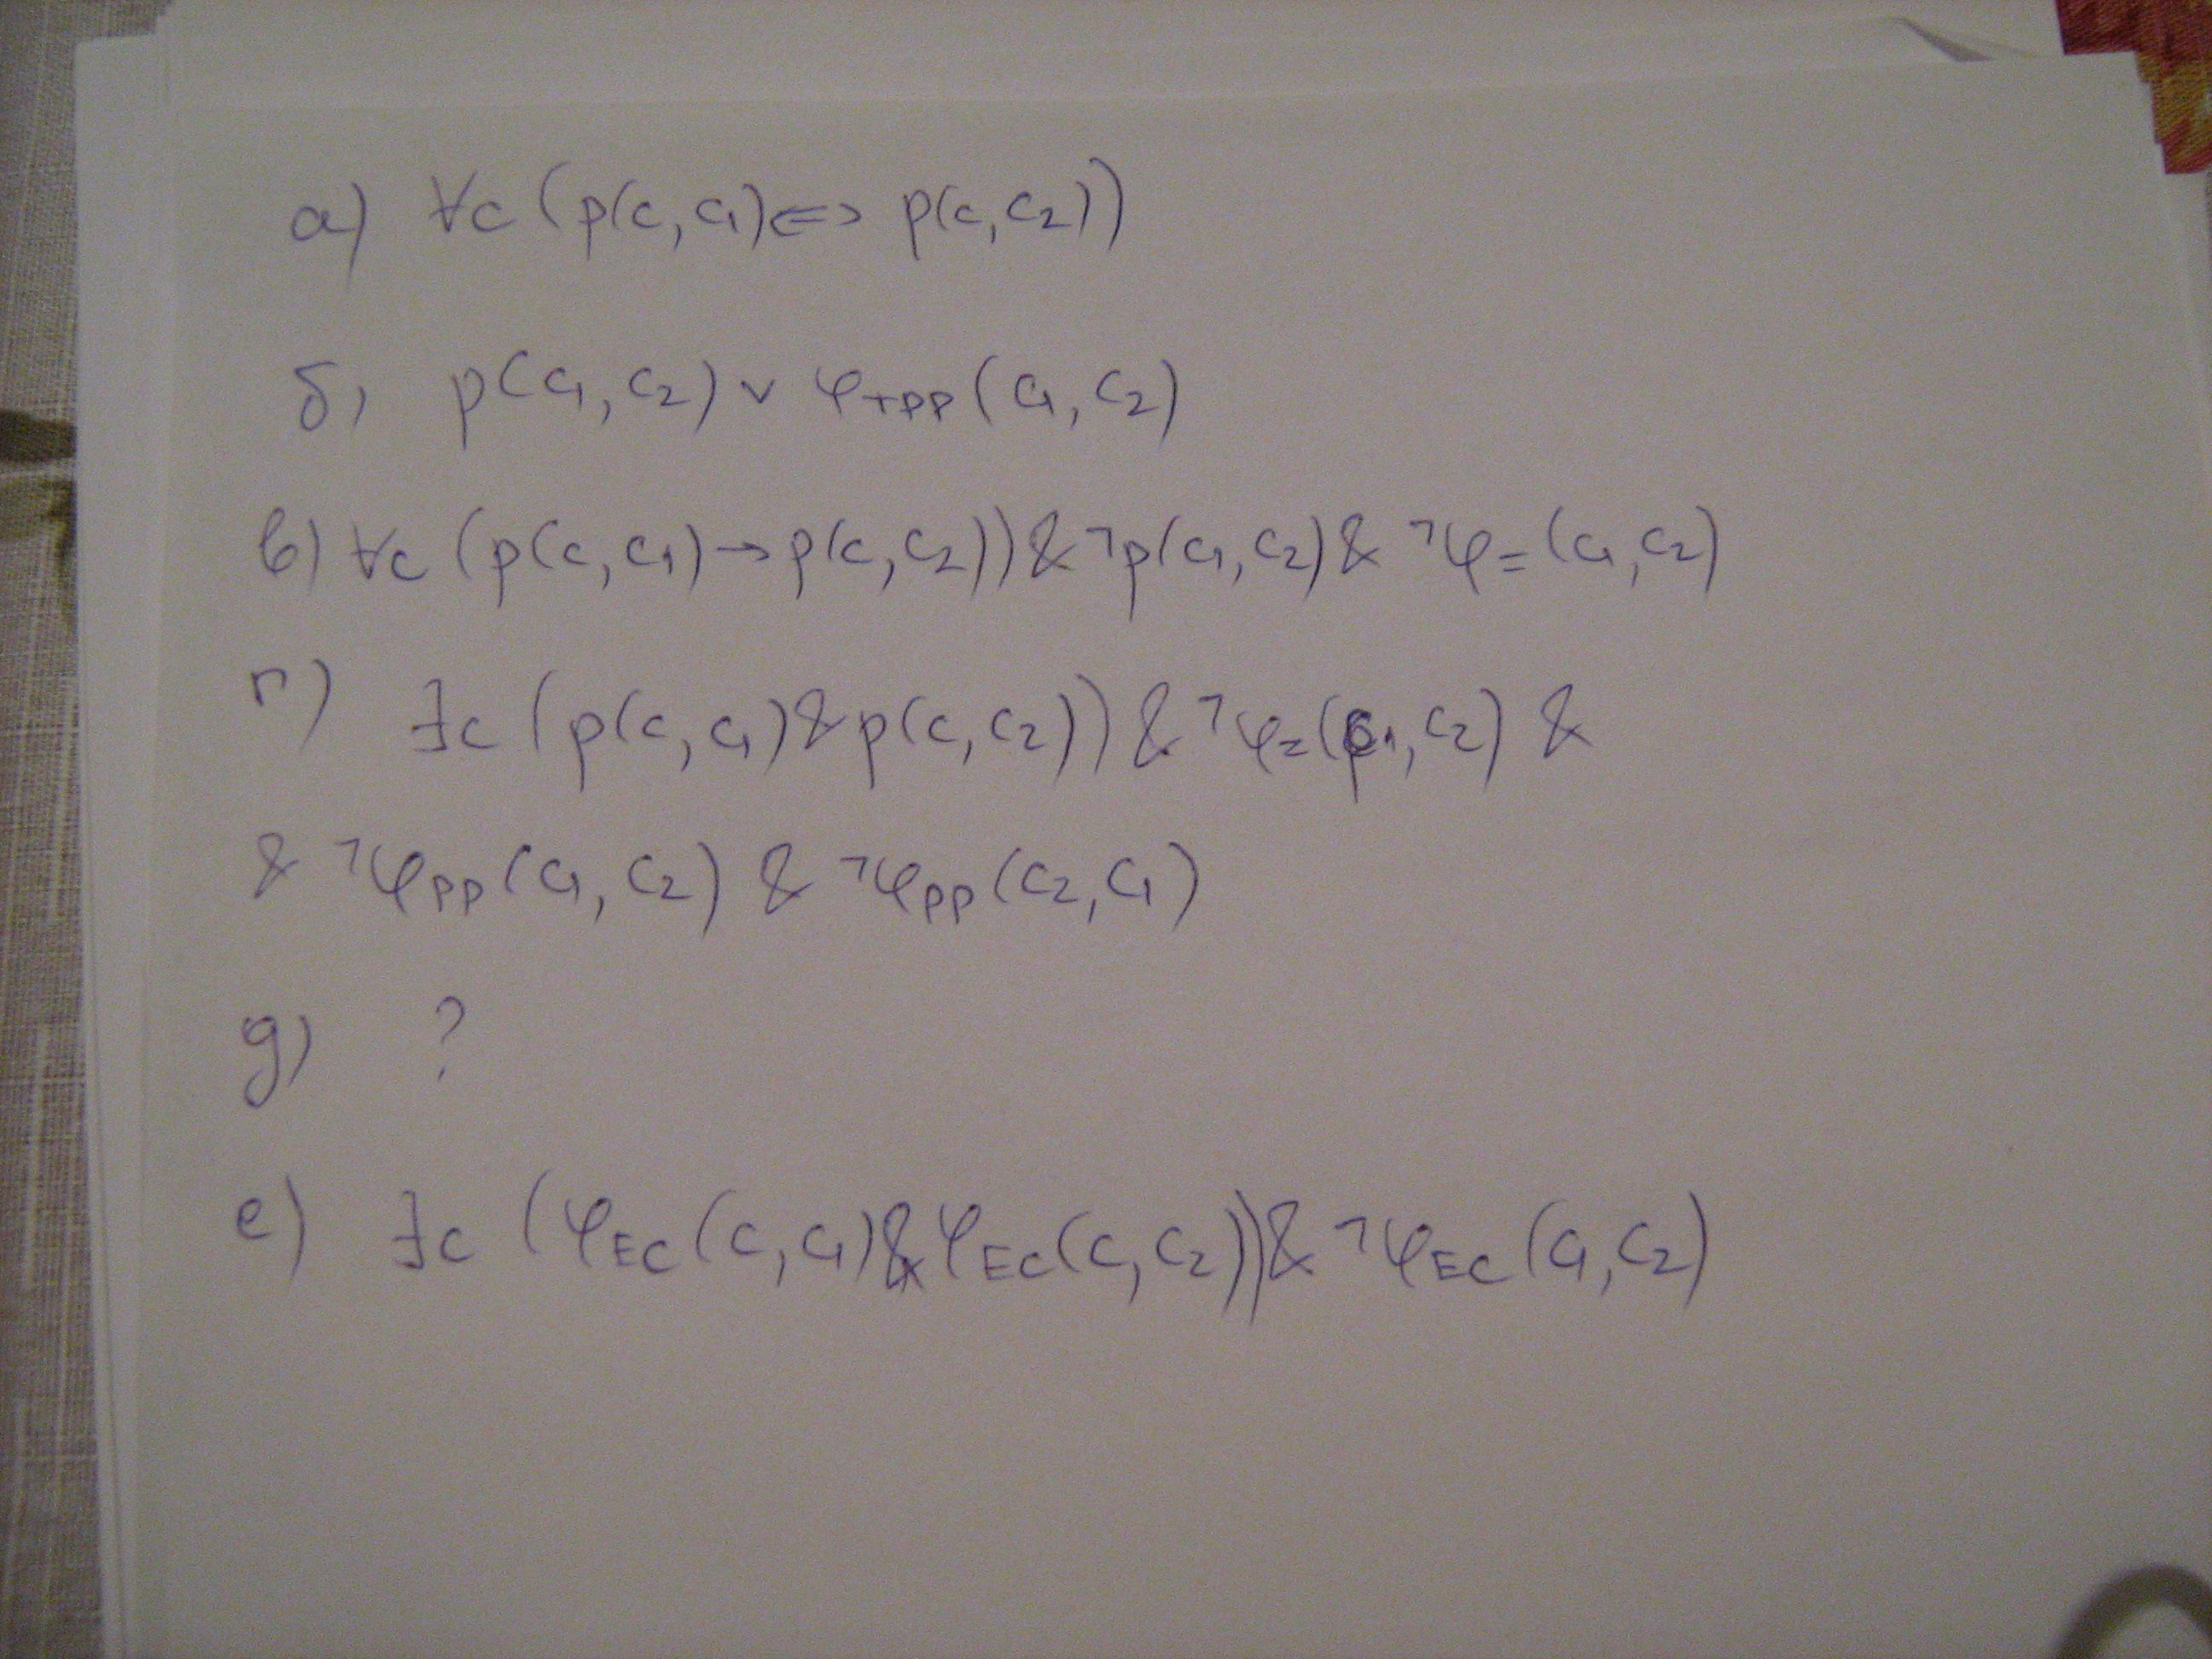 а) ∀c (p(c, c₁) <=> p(c, c₂))
б) p(c₁, c₂) ∨ φ_TPP (c₁, c₂)
в) ∀c (p(c, c₁) → p(c, c₂)) & ¬p(c₁, c₂) & ¬φ_= (c₁, c₂)
г) ∃c (p(c, c₁) & p(c, c₂)) & ¬φ_= (c₁, c₂) &
& ¬φ_PP (c₁, c₂) & ¬φ_PP (c₂, c₁)
д) ?
е) ∃c (φ_EC (c, c₁) & φ_EC (c, c₂)) & ¬φ_EC (c₁, c₂)